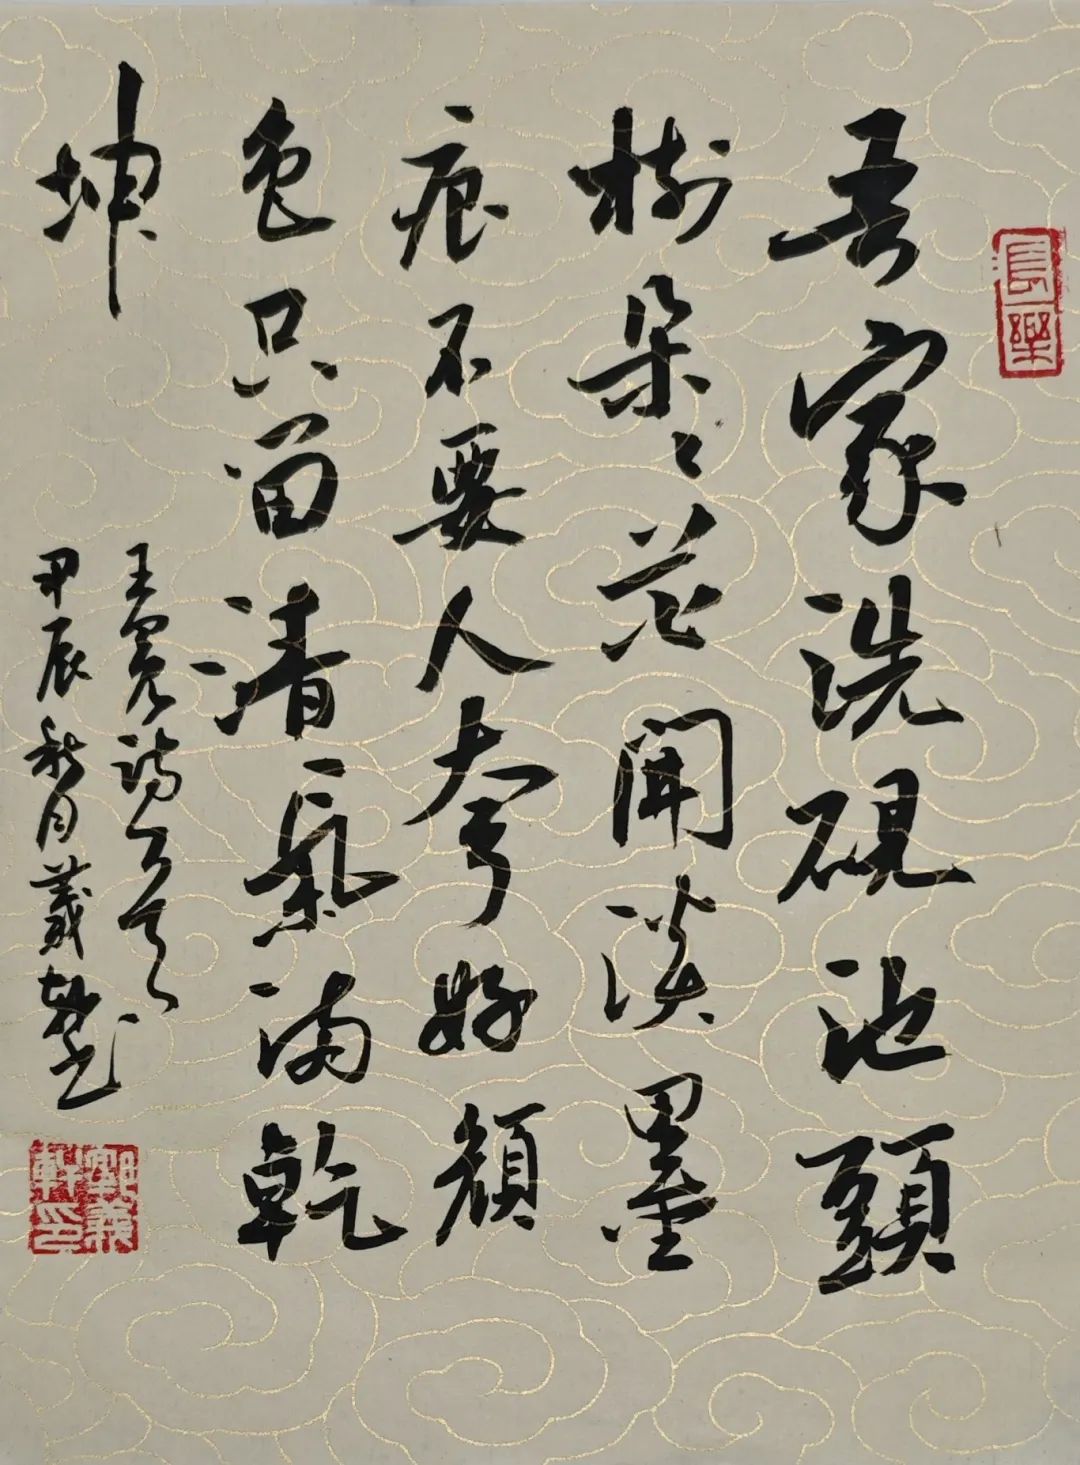 吾家洗硯池頭
樹朵〻花開淡墨
痕不要人夸好顔
色只留清氣滿乾
坤
王冕詩
甲辰秋月義軒
義軒印